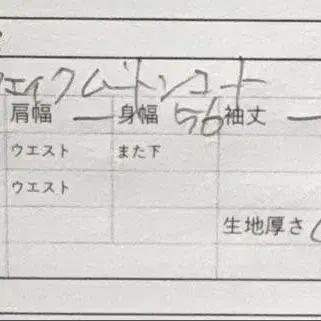 ェイクムートンコート
肩幅 ー 身幅 56 袖丈 ー
ウエスト また下
ウエスト
生地厚さ